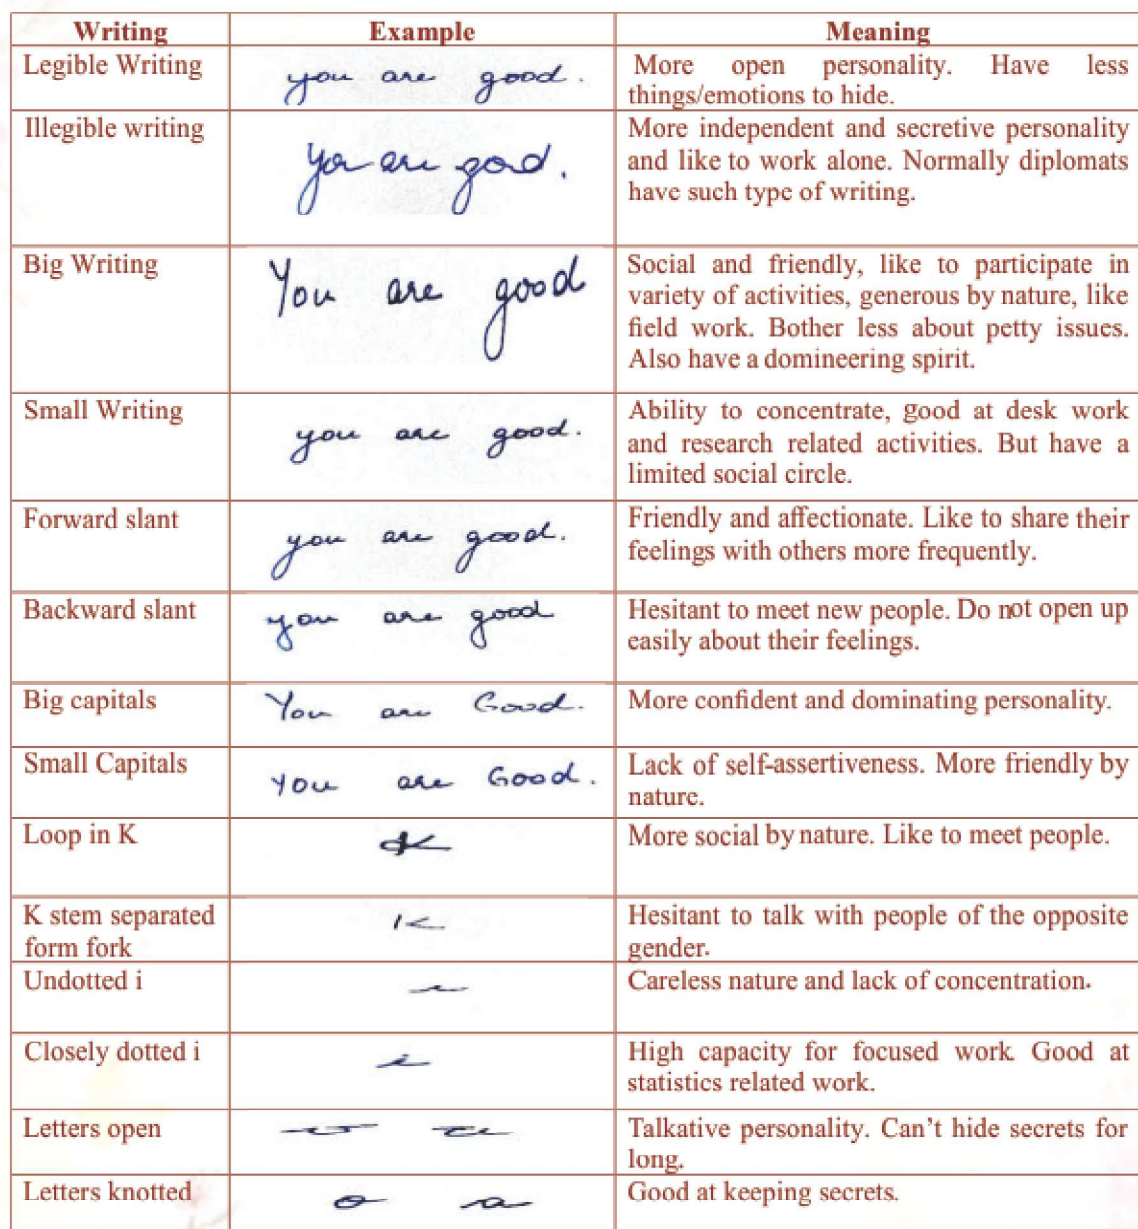 Writing Example Meaning
Legible Writing you are good. More open personality. Have less
things/emotions to hide.
Illegible writing you are good. More independent and secretive personality
and like to work alone. Normally diplomats
have such type of writing.
Big Writing You are good Social and friendly, like to participate in
variety of activities, generous by nature, like
field work. Bother less about petty issues.
Also have a domineering spirit.
Small Writing you are good. Ability to concentrate, good at desk work
and research related activities. But have a
limited social circle.
Forward slant you are good. Friendly and affectionate. Like to share their
feelings with others more frequently.
Backward slant you are good Hesitant to meet new people. Do not open up
easily about their feelings.
Big capitals You are Good. More confident and dominating personality.
Small Capitals You are Good. Lack of self-assertiveness. More friendly by
nature.
Loop in K K More social by nature. Like to meet people.
K stem separated K Hesitant to talk with people of the opposite
form fork gender.
Undotted i ı Careless nature and lack of concentration.
Closely dotted i i High capacity for focused work. Good at
statistics related work.
Letters open Talkative personality. Can't hide secrets for
long.
Letters knotted o a Good at keeping secrets.